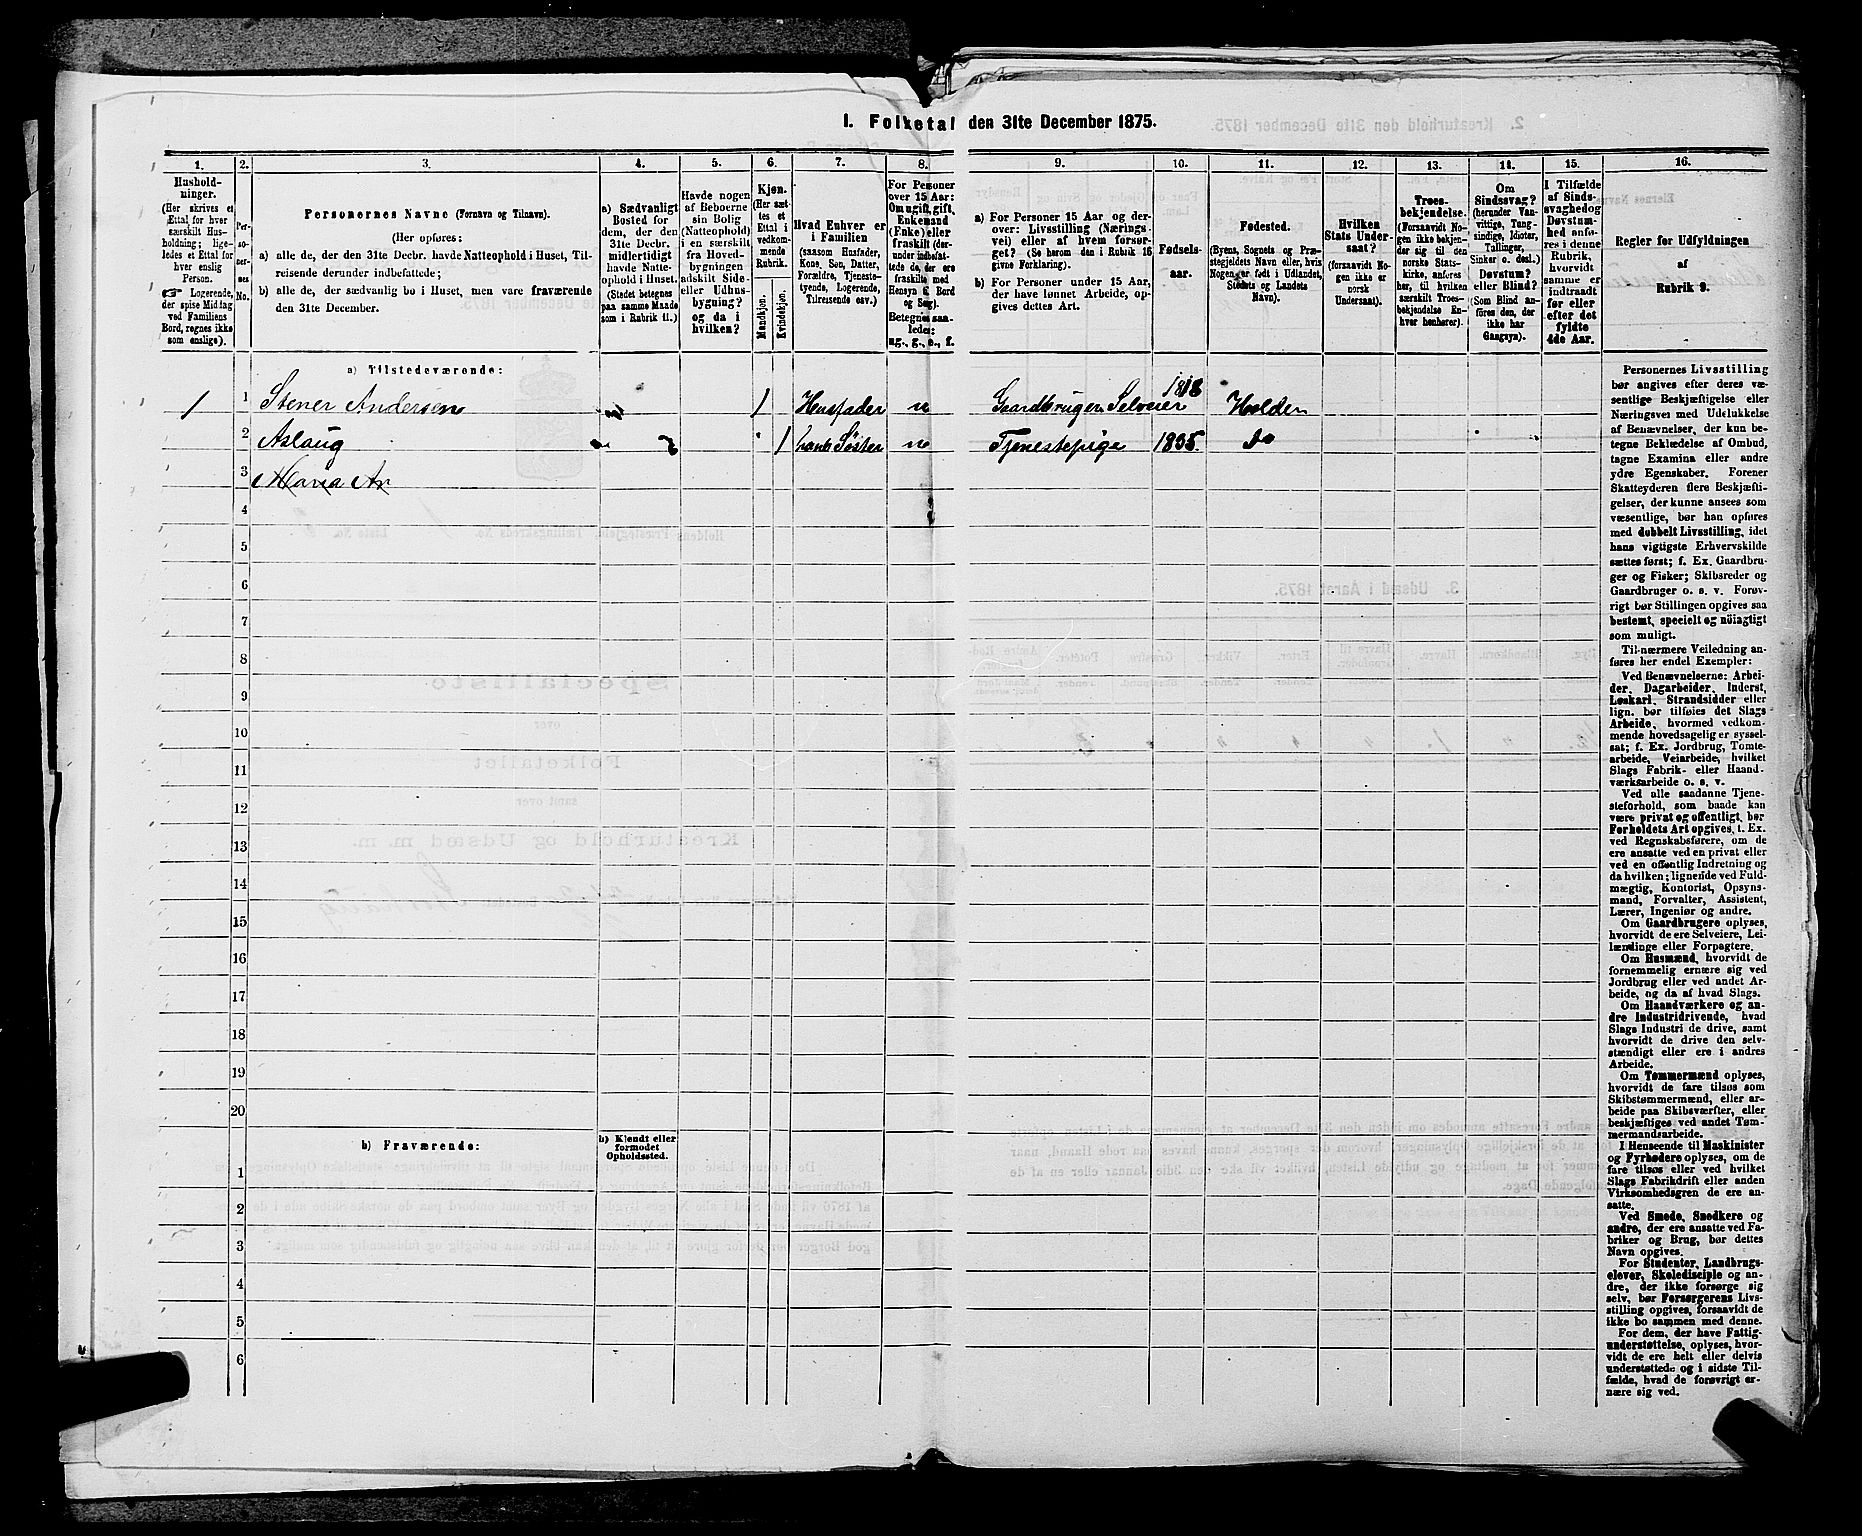 1. Folketal den 31te December 1875.
1. 2. 3. 4. 5. 6. 7. 8. 9. 10. 11. 12. 13. 14. 15. 16.
Hushold-
ninger.
(Her skrives et
Ettal for hver
særskilt Hus-
holdning; lige-
ledes et Ettal for
hver enslig
Person.
☞ Logerende,
der spise Middag
ved Familiens
Bord, regnes ikke
som enslige).
Per-
so-
ner-
nes
No.
Personernes Navne (Fornavn og Tilnavn).
(Her opføres:
a) alle de, der den 31te Decbr. havde Natteophold i Huset, Til-
reisende derunder indbefattede;
b) alle de, der sædvanlig bo i Huset, men vare fraværende
den 31te December.
a) Sædvanligt
Bosted for
dem, der den
31te Decbr.
midlertidigt
havde Natte-
ophold i Huset.
(Stedet betegnes
paa samme Maade
som i Rubrik 11.)
Havde nogen
af Beboerne
sin Bolig
(Natteophold)
i en særskilt
fra Hoved-
bygningen
adskilt Side-
eller Udhus-
bygning?
og da i
hvilken?
Kjøn.
(Her sæt-
tes et
Ettal i
vedkom-
mende
Rubrik.
Mandkjøn.
Kvindekjøn.
Hvad Enhver er
i Familien
(saasom Husfader,
Kone, Søn, Datter,
Forældre, Tjeneste-
tyende, Logerende,
Tilreisende osv.)
For Personer
over 15 Aar:
Om ugift, gift,
Enkemand
(Enke) eller
fraskilt (der-
under indbefat-
tede de, der ere
fraskilte med
Hensyn til Bord
og Seng)
Betegnes saa-
ledes:
ug., g., e., f.
a) For Personer 15 Aar og der-
over: Livsstilling (Nærings-
vei) eller af hvem forsør-
get? (Se herom den i Rubrik 16
givne Forklaring).
b) For Personer under 15 Aar,
der have lønnet Arbeide, op-
gives dettes Art.
Fødsels-
aar.
Fødested.
(Byens, Sognets og Præ-
stegjeldets Navn eller, hvis
Nogen er født i Udlandet,
Stedets og Landets
Navn).
Hvilken
Stats Under-
saat?
(forsaavidt No-
gen ikke er
norsk
Undersaat).
Troes-
bekjendelse.
(Forsaavidt No-
gen ikke bekjen-
der sig til den
norske Stats-
kirke, anføres
her, til hvilken
særskilt Troes-
bekjendelse En-
hver henhører).
Om
Sindssvag?
(herunder Van-
vittige, Tung-
sindige, Idioter,
Tullinger,
Sinker o. desl.).
Døvstum?
eller Blind?
(Som Blind an-
føres den, der
ikke har
Gangsyn).
I Tilfælde
af Sinds-
svaghed og
Døvstum-
hed anfø-
res i denne
Rubrik,
hvorvidt
samme er
indtraadt
før eller
efter det
fyldte
4de Aar.
Regler for Udfyldningen
af
Rubrik 9.
a) Tilstedeværende:
1 1 Stener Andersen 1 Husfader u Gaardbruger Selveier 1818 Holden
2 Aslaug 1 hans Søster u Tjenestepige 1835 do
3 Maria An
4
5
6
7
8
9
10
11
12
13
14
15
16
17
18
19
20
b) Fraværende:
b) Kjendt eller
formodet
Opholdssted.
1
2
3
4
5
6
Personernes Livsstilling
bør angives efter deres væ-
sentlige Beskjæftigelse eller
Næringsvei med Udelukkelse
af Benævnelser, der kun be-
tegne Beklædelse af Ombud,
tagne Examina eller andre
ydre Egenskaber. Forener
Skatteyderen flere Beskjæfti-
gelser, der kunne ansees som
væsentlige, bør han opføres
med dobbelt Livsstilling, idet
hans vigtigste Erhvervskilde
sættes først; f. Ex. Gaardbru-
ger og Fisker; Skibsreder og
Gaardbruger o. s. v. Forøv-
rigt bør Stillingen opgives saa
bestemt, specielt og nøiagtigt
som muligt.
Til nærmere Veiledning an-
føres her endel Exempler:
Ved Benævnelserne: Arbei-
der, Dagarbeider, Inderst,
Løskarl, Strandsidder eller
lign. bør tilføies det Slags
Arbeide, hvormed vedkom-
mende hovedsagelig er syssel-
sat; f. Ex. Jordbrug, Tomte-
arbeide, Veiarbeide, hvilket
Slags Fabrik- eller Haand-
værksarbeide o. s. v.
Ved alle saadanne Tjene-
steforhold, som baade kan
være privat og offentligt, bør
Forholdets Art opgives, t. Ex.
ved Regnskabsførere, om de
ere ansatte ved en privat eller
ved en offentlig Indretning og
da hvilken; lignende ved Fuld-
mægtig, Kontorist, Opsyns-
mand, Forvalter, Assistent,
Lærer, Ingeniør og andre.
Om Gaardbrugere oplyses,
hvorvidt de ere Selveiere, Lei-
lændinge eller Forpagtere.
Om Husmænd, hvorvidt de
fornemmelig ernære sig ved
Jordbrug eller ved andet Ar-
beide, og da af hvad Slags.
Om Haandværkere og an-
dre Industridrivende, hvad
Slags Industri de drive, samt
hvorvidt de drive den selv-
stændigt eller ere i andres
Arbeide.
Om Tømmermænd oplyses,
hvorvidt de fare tilsøs som
Skibstømmermænd, eller ar-
beide paa Skibsværfter, eller
beskjæftiges ved andet Tøm-
mermandsarbeide.
I Henseende til Maskinister
og Fyrbødere oplyses, om de
fare tilsøs eller ved hvilket
Slags Fabrikdrift eller anden
Virksomhedsgren de ere an-
satte.
Ved Smede, Snedkere og
andre, der ere ansatte ved Fa-
briker og Brug, bør dettes
Navn opgives.
For Studenter, Landbrugs-
elever, Skoledisciple og an-
dre, der ikke forsørge sig
selv, bør Forsørgerens Livs-
stilling opgives, forsaavidt de
ikke bo sammen med denne.
For dem, der have Fattig-
understøttelse, oplyses, hvor-
vidt de ere helt eller delvis
understøttede og i sidste Til-
fælde, hvad de forøvrigt er-
nære sig ved.